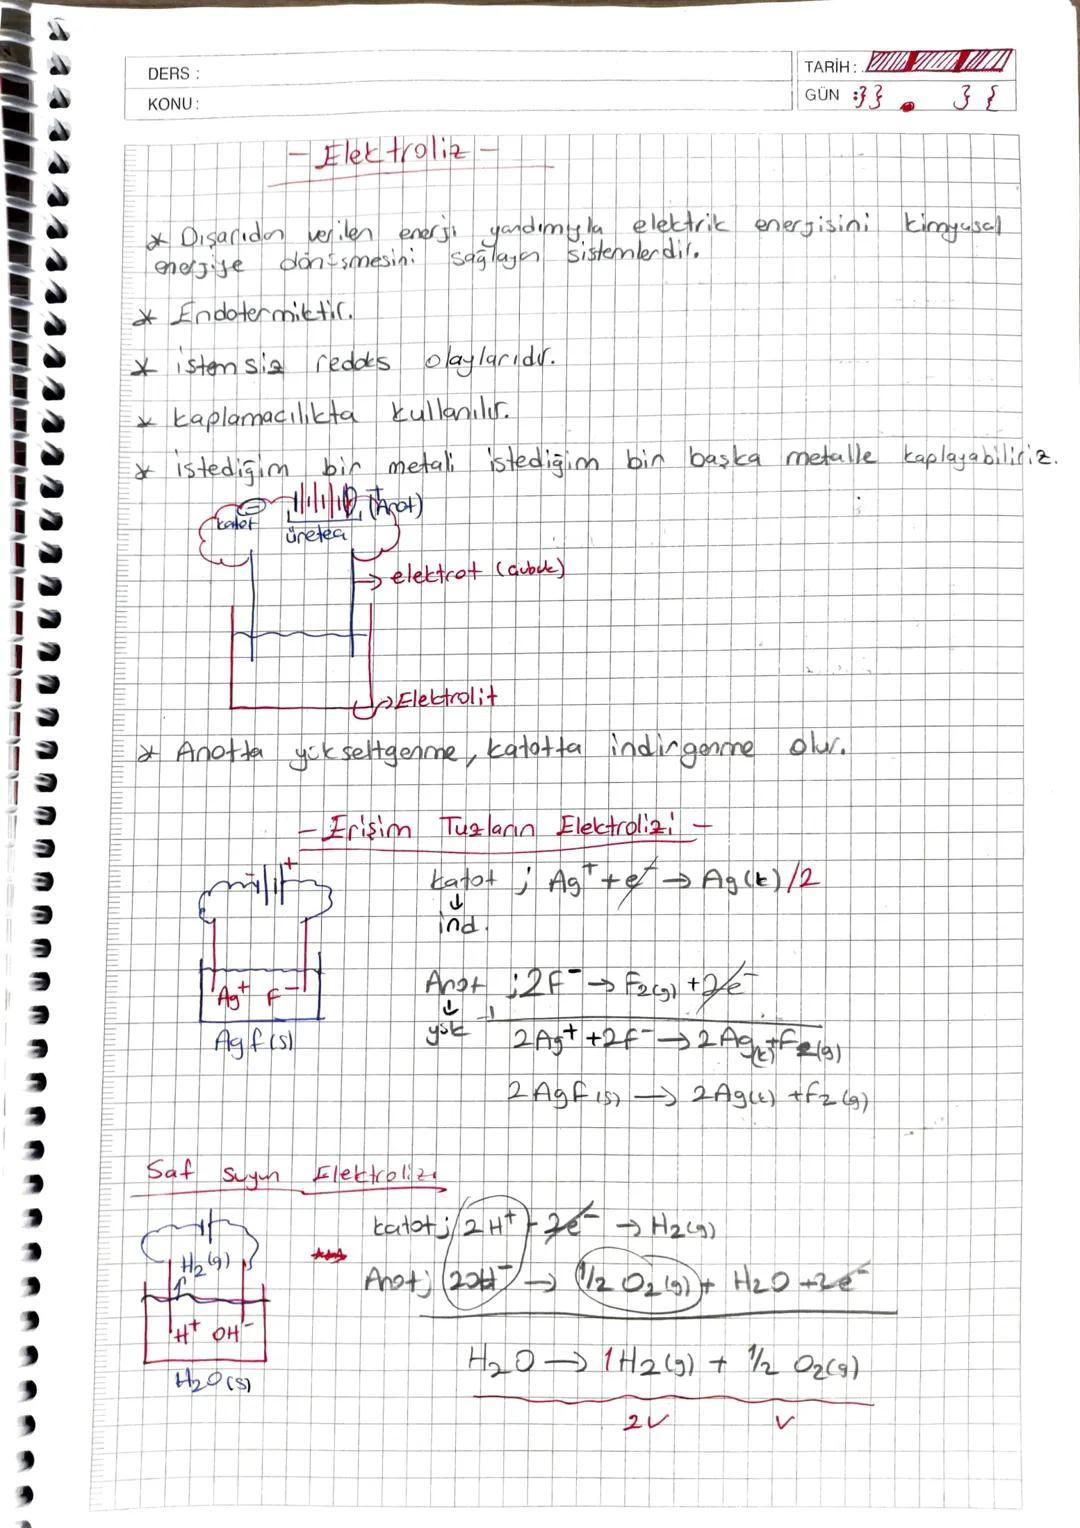 DERS :
KONU:
TARİH:
GÜN :
- Elektroliz -
* Dışarıdan verilen enerji yardımıyla elektrik enerjisini kimyasal
enerjiye dönüşmesini sağlayan sistemlerdir.
* Endotermiktir.
* istemsiz redoks olaylarıdır.
* kaplamacılıkta kullanılır.
* istediğim bir metali istediğim bir başka metalle kaplayabiliriz.
katot
- + (Anot)
üreteç
→ elektrot (çubuk)
→ Elektrolit
* Anotta yükseltgenme, katotta indirgenme olur.
- Erişim Tuzların Elektrolizi -
- +
Katot ; Ag⁺ + e⁻ → Ag(k) /2
↓
ind.
Ag⁺ F⁻
Anot ; 2F⁻ → F₂(g) + 2e⁻
↓
yük
AgF(s)
2Ag⁺ + 2F⁻ → 2Ag(k) + F₂(g)
2AgF(s) → 2Ag(k) + F₂(g)
Saf suyun Elektrolizi
katot ; 2H⁺ + 2e⁻ → H₂(g)
H₂(g)
Anot ; 2OH⁻ → 1/2 O₂(g) + H₂O + 2e⁻
H⁺ OH⁻
H₂O(s)
H₂O → 1H₂(g) + 1/2 O₂(g)
2V V